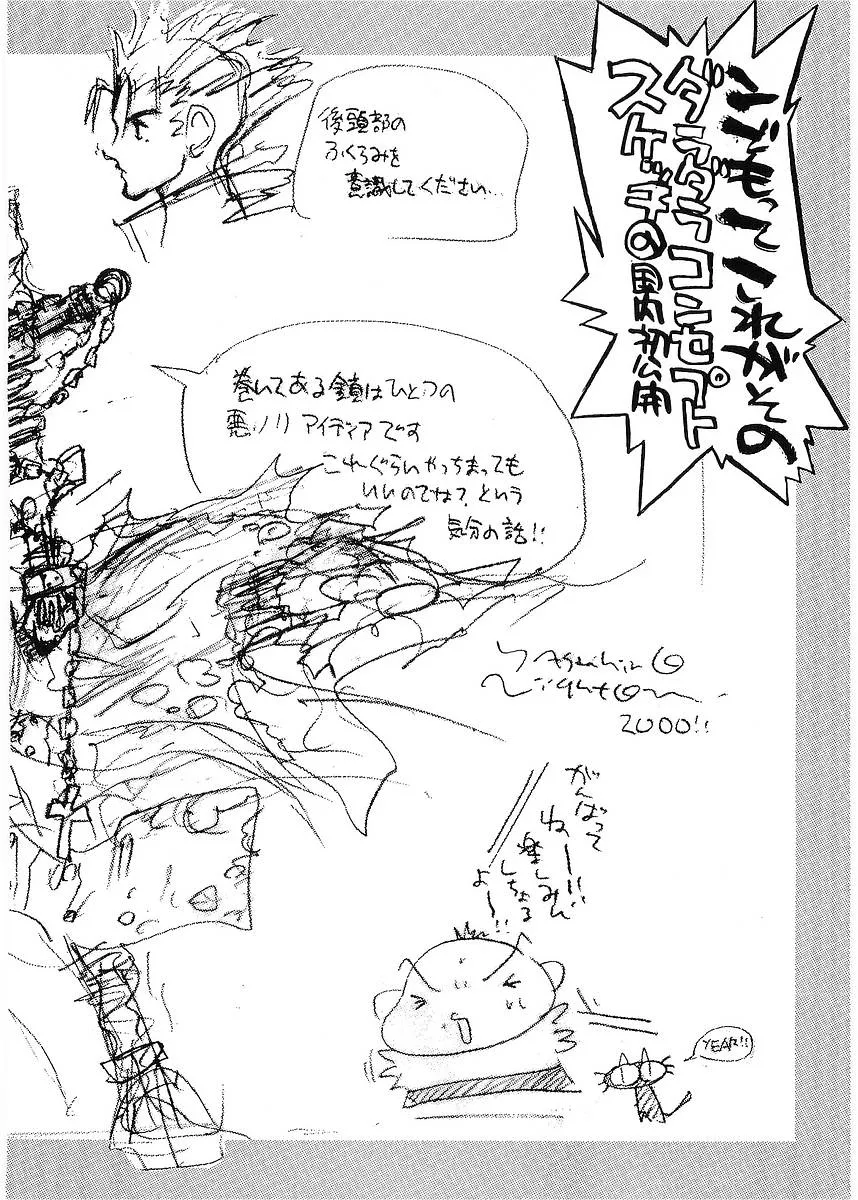 でもってこれがその
ダラダラコンセプト
スケッチの男初公開
後頭部の
ふくらみを
意識してください…
巻いてある鎖はひとつの
悪ノリアイディアです
これぐらいやっちまっても
いいのでは?という
気分の話!!
Yasuhiro
Nightow
2000!!
がんばって
ねー!!
楽しみん
しちょる
よー!!
YEAH!!